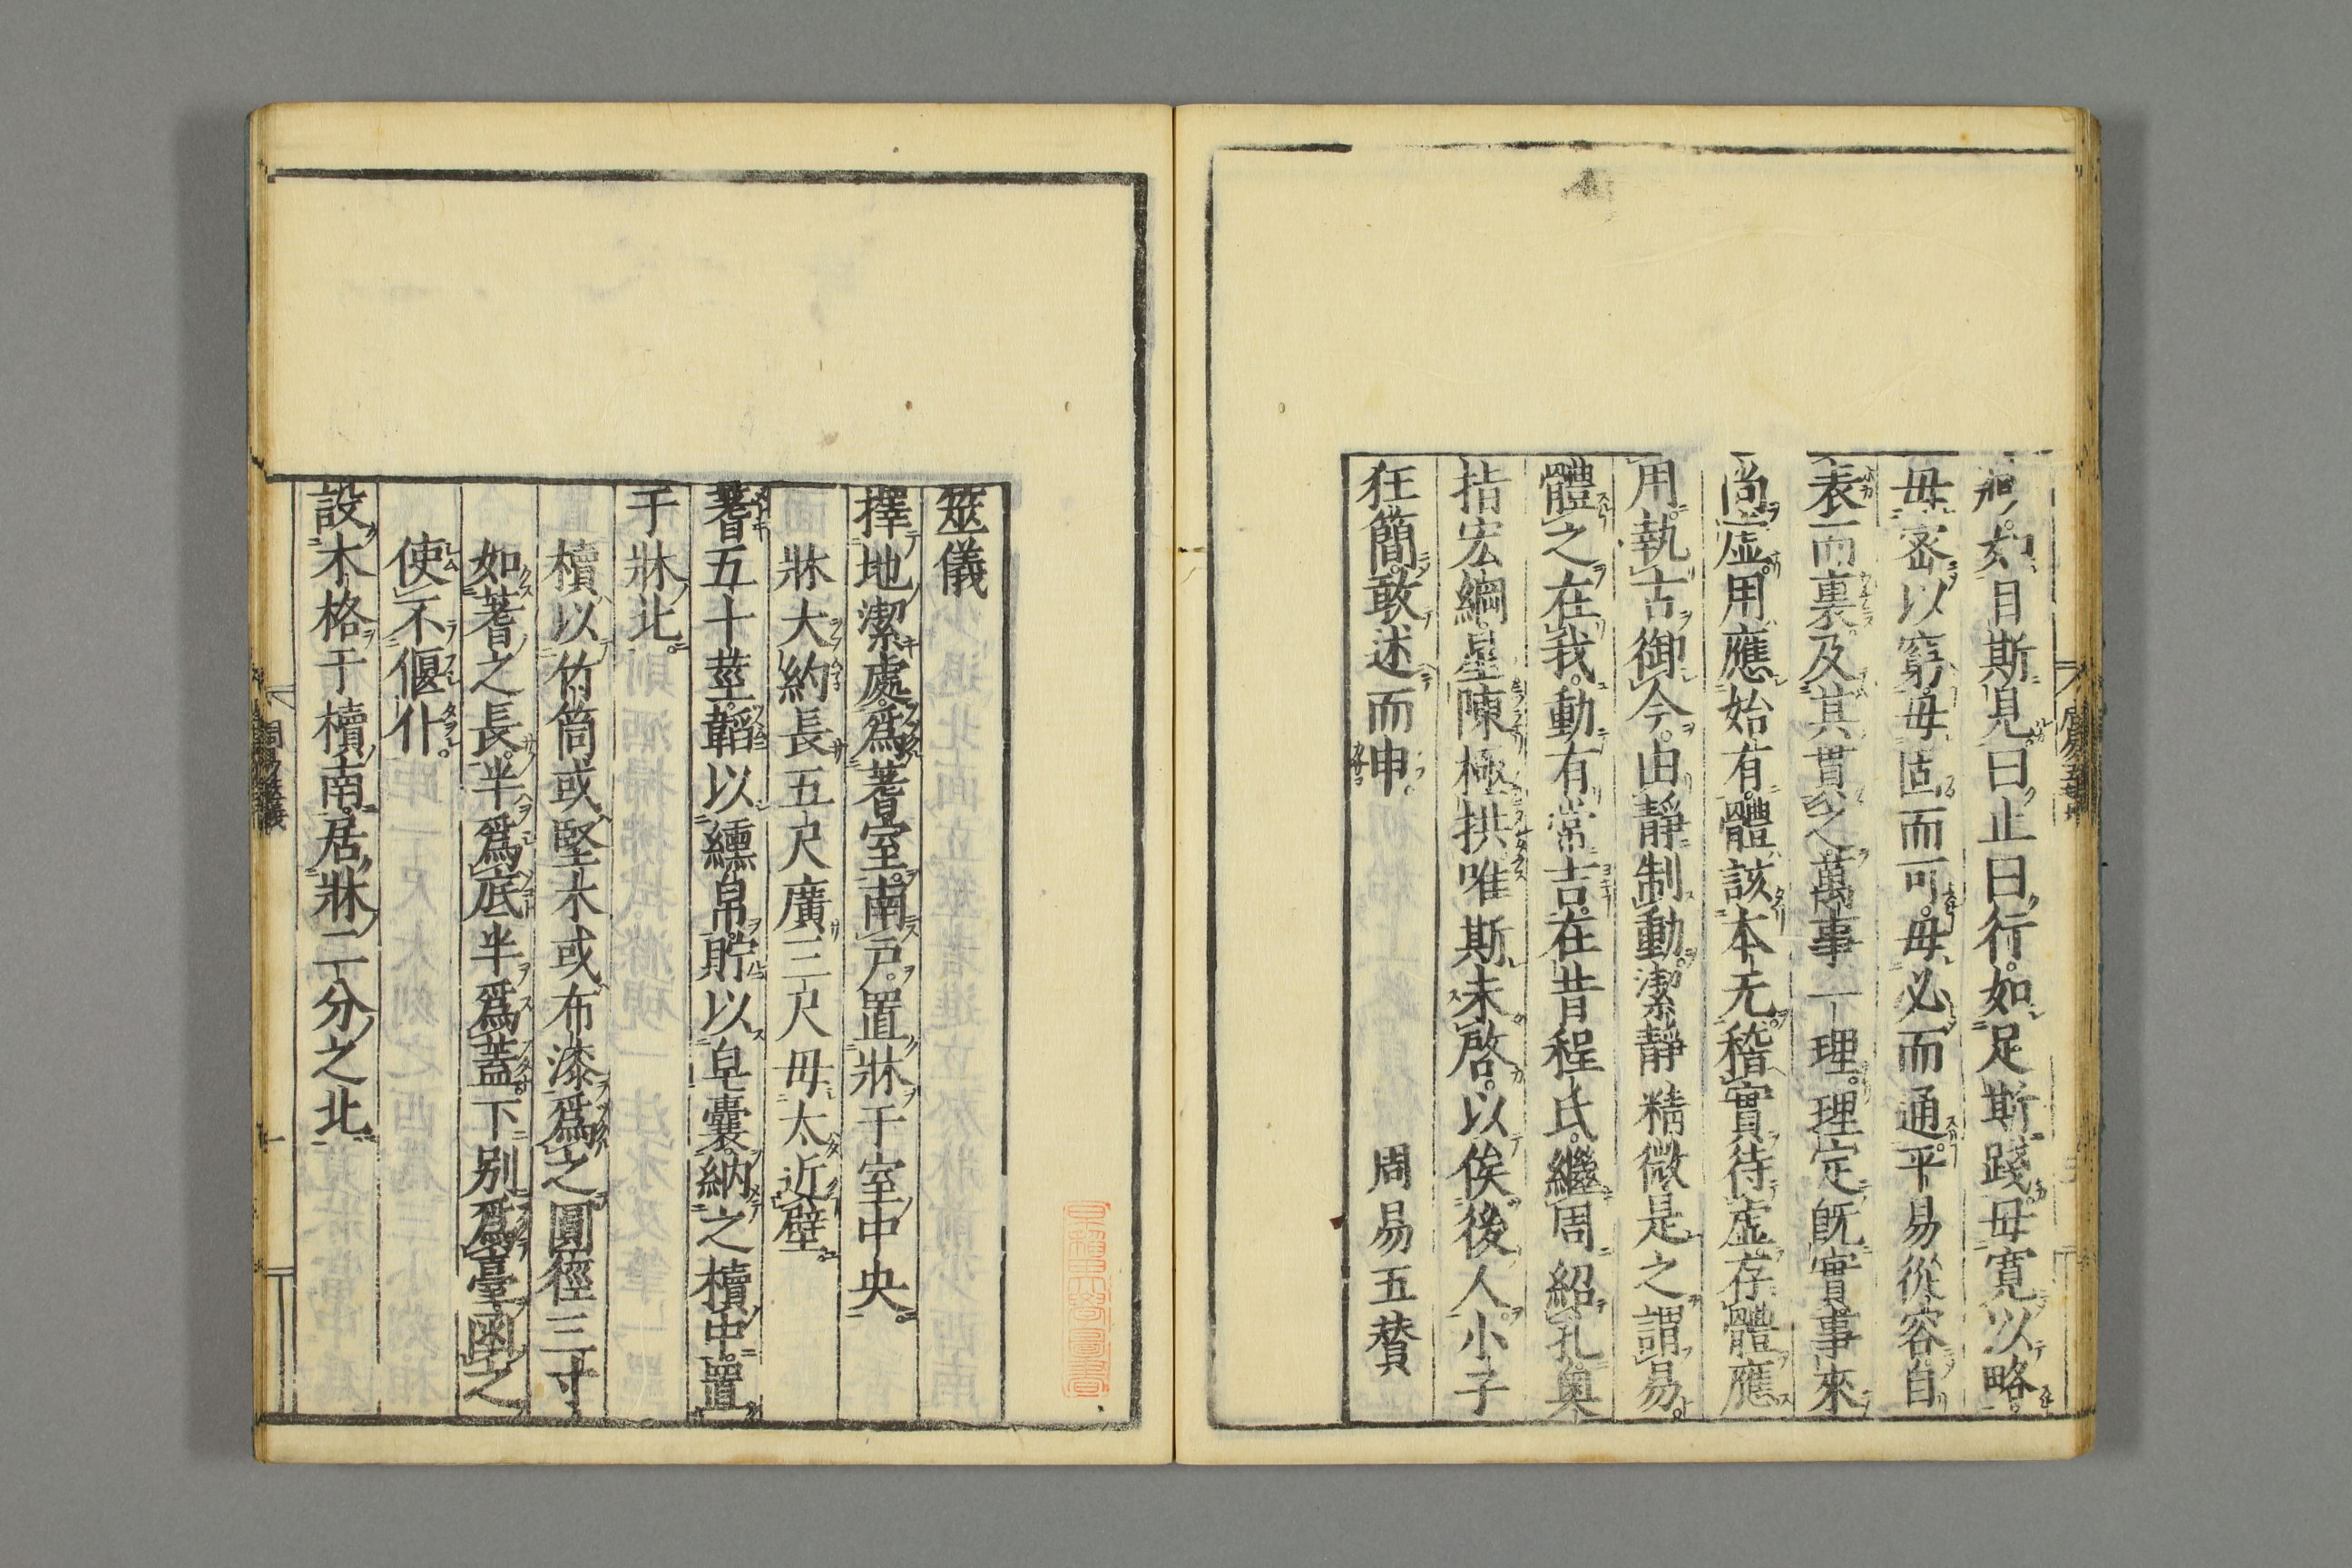 形如目斯見曰止曰行如足斯踐毋寛以略
毋宻以窮毋固而可毋必而通平易從容自
表而裏及其貫之萬事一理理定既實事來
尚虚用應始有體該本无稽實待虚存體應
用執古御今由靜制動潔靜精微是之謂易
體之在我動有常吉在昔程氏繼周紹孔奥
指宏綱星陳極拱唯斯未啓以俟後人小子
狂簡敢述而申
周易五賛
筮儀
擇地潔處爲蓍室南戸置牀于室中央
牀大約長五尺廣三尺毋太近壁
蓍五十莖韜以纁帛貯以皁囊納之櫝中置
于牀北
櫝以竹筒或堅木或布漆爲之圓徑三寸
如蓍之長半爲底半爲蓋下别爲臺函之
使不偃仆
設木格于櫝南居牀二分之北
周易筮儀
一